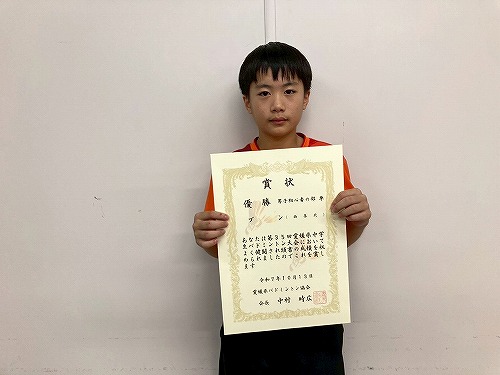 賞状
優勝 男子初心者の部 単
あなたは第35回愛媛県中学
生バドミントン大会において
よく健闘され頭書の成績を収
められましたのでこれを賞し
ます
令和7年10月13日
愛媛県バドミントン協会
会長 中村 時広